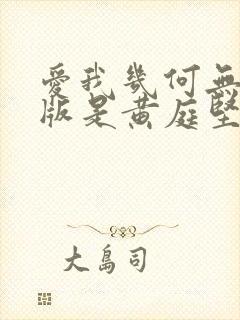 愛我幾何無
版是黄庭堅
大島司